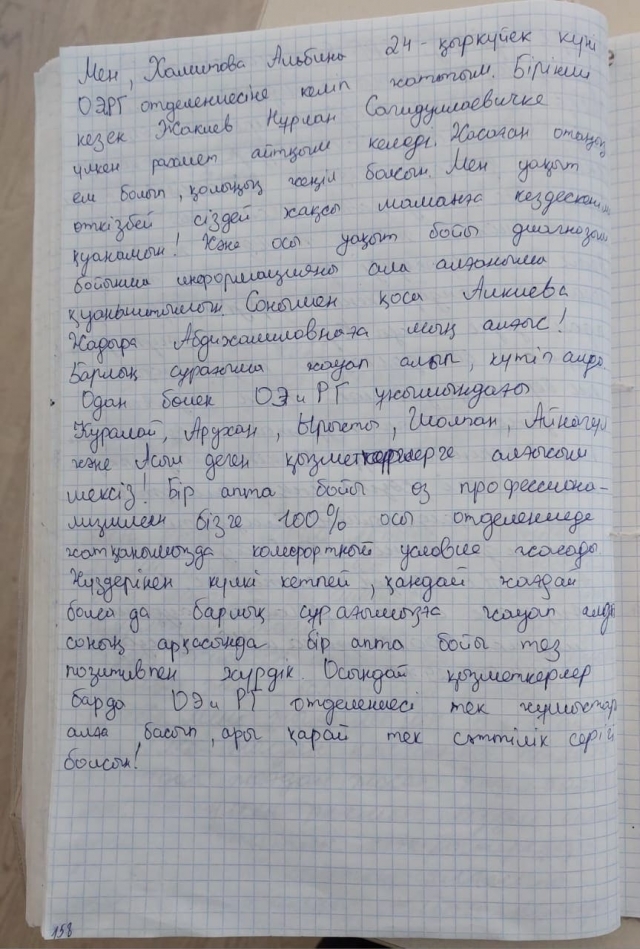 Мен, Халитова Альбина 24 - қыркүйек күні
ОЭРГ отделениесіне келіп жаттым. Бірінші
кезек Жакиев Нурлан Сагидуллаевичке
үлкен рахмет айтқым келеді. Жасаған отаңыз
ем болып, қолыңыз жеңіл болсын. Мен уақыт
өткізбей сіздей жақсы маманға кездескеніме
қуанамын! Және осы уақыт бойы диагнозым
бойынша информацияны ала алғаныма
қуаныштымын. Сонымен қоса Алкиева
Надыра Абдихамиловнаға мың алғыс!
Барлық сұрағыма жауап алып, күтіп алды.
Одан бөлек ОЭ и РГ ұжымындағы
Куралай, Аружан, Ырысты, Шолпан, Айнагүл
және Асыл деген қызметкерлерге алғысым
шексіз! Бір апта бойы өз профессиона-
лизмімен бізге 100% осы отделениеде
жатқанымызда комфортный условие жасады
Жүздерінен күлкі кетпей, қандай жағдай
болса да барлық сұрағымызға жауап алды
соның арқасында бір апта бойы тез
позитивпен жүрдік. Осындай қызметкерлер
барда ОЭ и РГ отделениесі тек жұмыстар
алға басып, ары қарай тек сәттілік серігі
болсын!
158